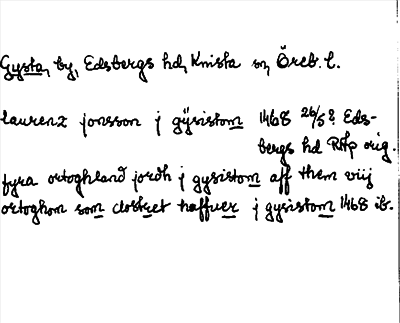 Gysta, by, Edsbergs hd, Knista sn, Öreb. l.
laurenz jonsson j gÿsistom 1468 26/5? Eds-
bergs hd RAp orig.
fyra ortoghland jordh j gysistom aff them viij
ortoghom som clostret haffuer j gysistom 1468 ib.